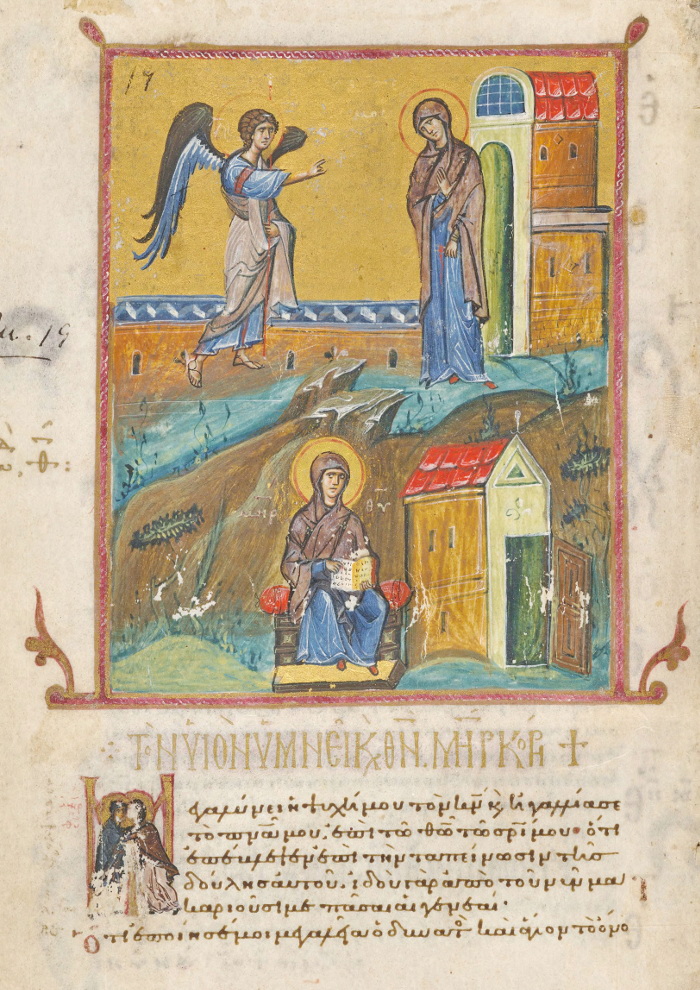 17
ΜΗΡ ΘΥ
ΤΟΝ ΥΙΟΝ ΥΜΝΕΙ Κ ΘΝ. ΜΗΡ ΚΟΡΗ +
Μεγαλύνει ἡ ψυχή μου τὸν κν κ ἠγαλλίασε
τὸ πνα μου, ἐπὶ τῶ θῶ τῶ σρι μου· ὅτι
ἐπέβλεψεν ἐπὶ τὴν ταπείνωσιν τῆς
δούλης αὐτοῦ. ἰδοὺ γὰρ ἀπὸ τοῦ νῦν μα
καριοῦσι με πᾶσαι αἱ γενεαί·
Ὅτι ἐποίησέ μοι μεγαλεῖα ὁ δυνατὸς καὶ ἅγιον τὸ ὄνο